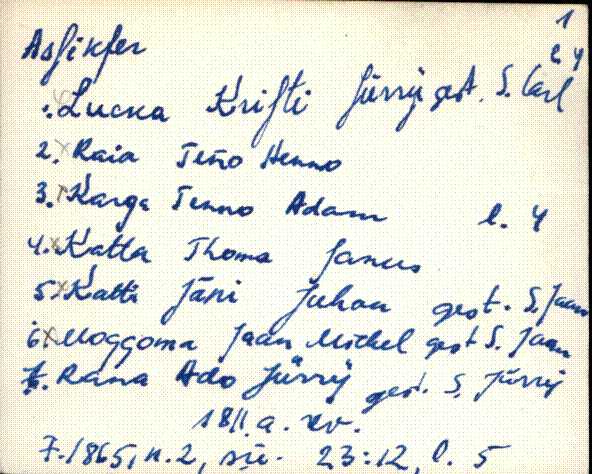 1
Asfikfer l. 4
1. Lucka Krifti Jürry gest. S. Carl
2. Raia Teño Henno
3. Karga Tenno Adam l. 4
4. Katta Thoma Janus
5. Katti Jäni Juhan gest. S. Jaan
6. Moggoma Jaan Michel gest S. Jaan
7. Rana Ado Jürry gest. S. Jürry
1811. a. rev.
F. 1865, n. 2, sü. 23:12, l. 5